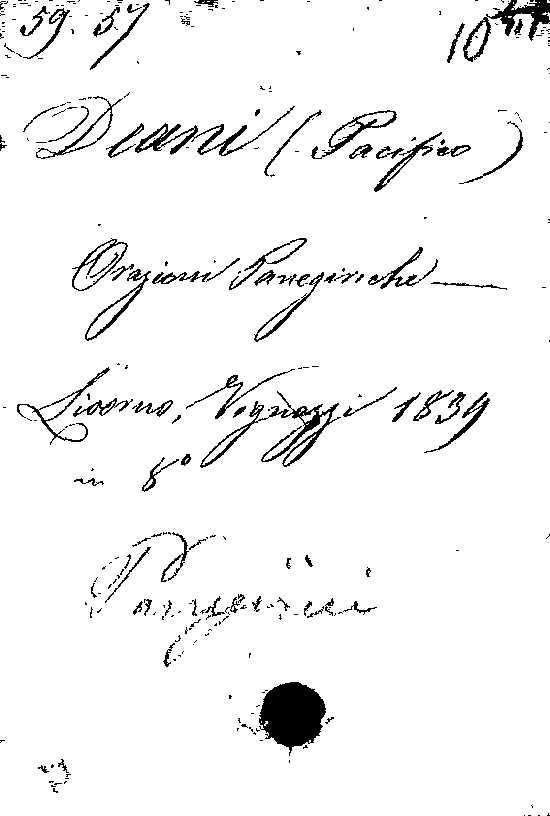 59. 57
10
Deani (Pacifico)
Orazioni Panegiriche —
Livorno, Vignozzi 1839
in 8°
Panegirici